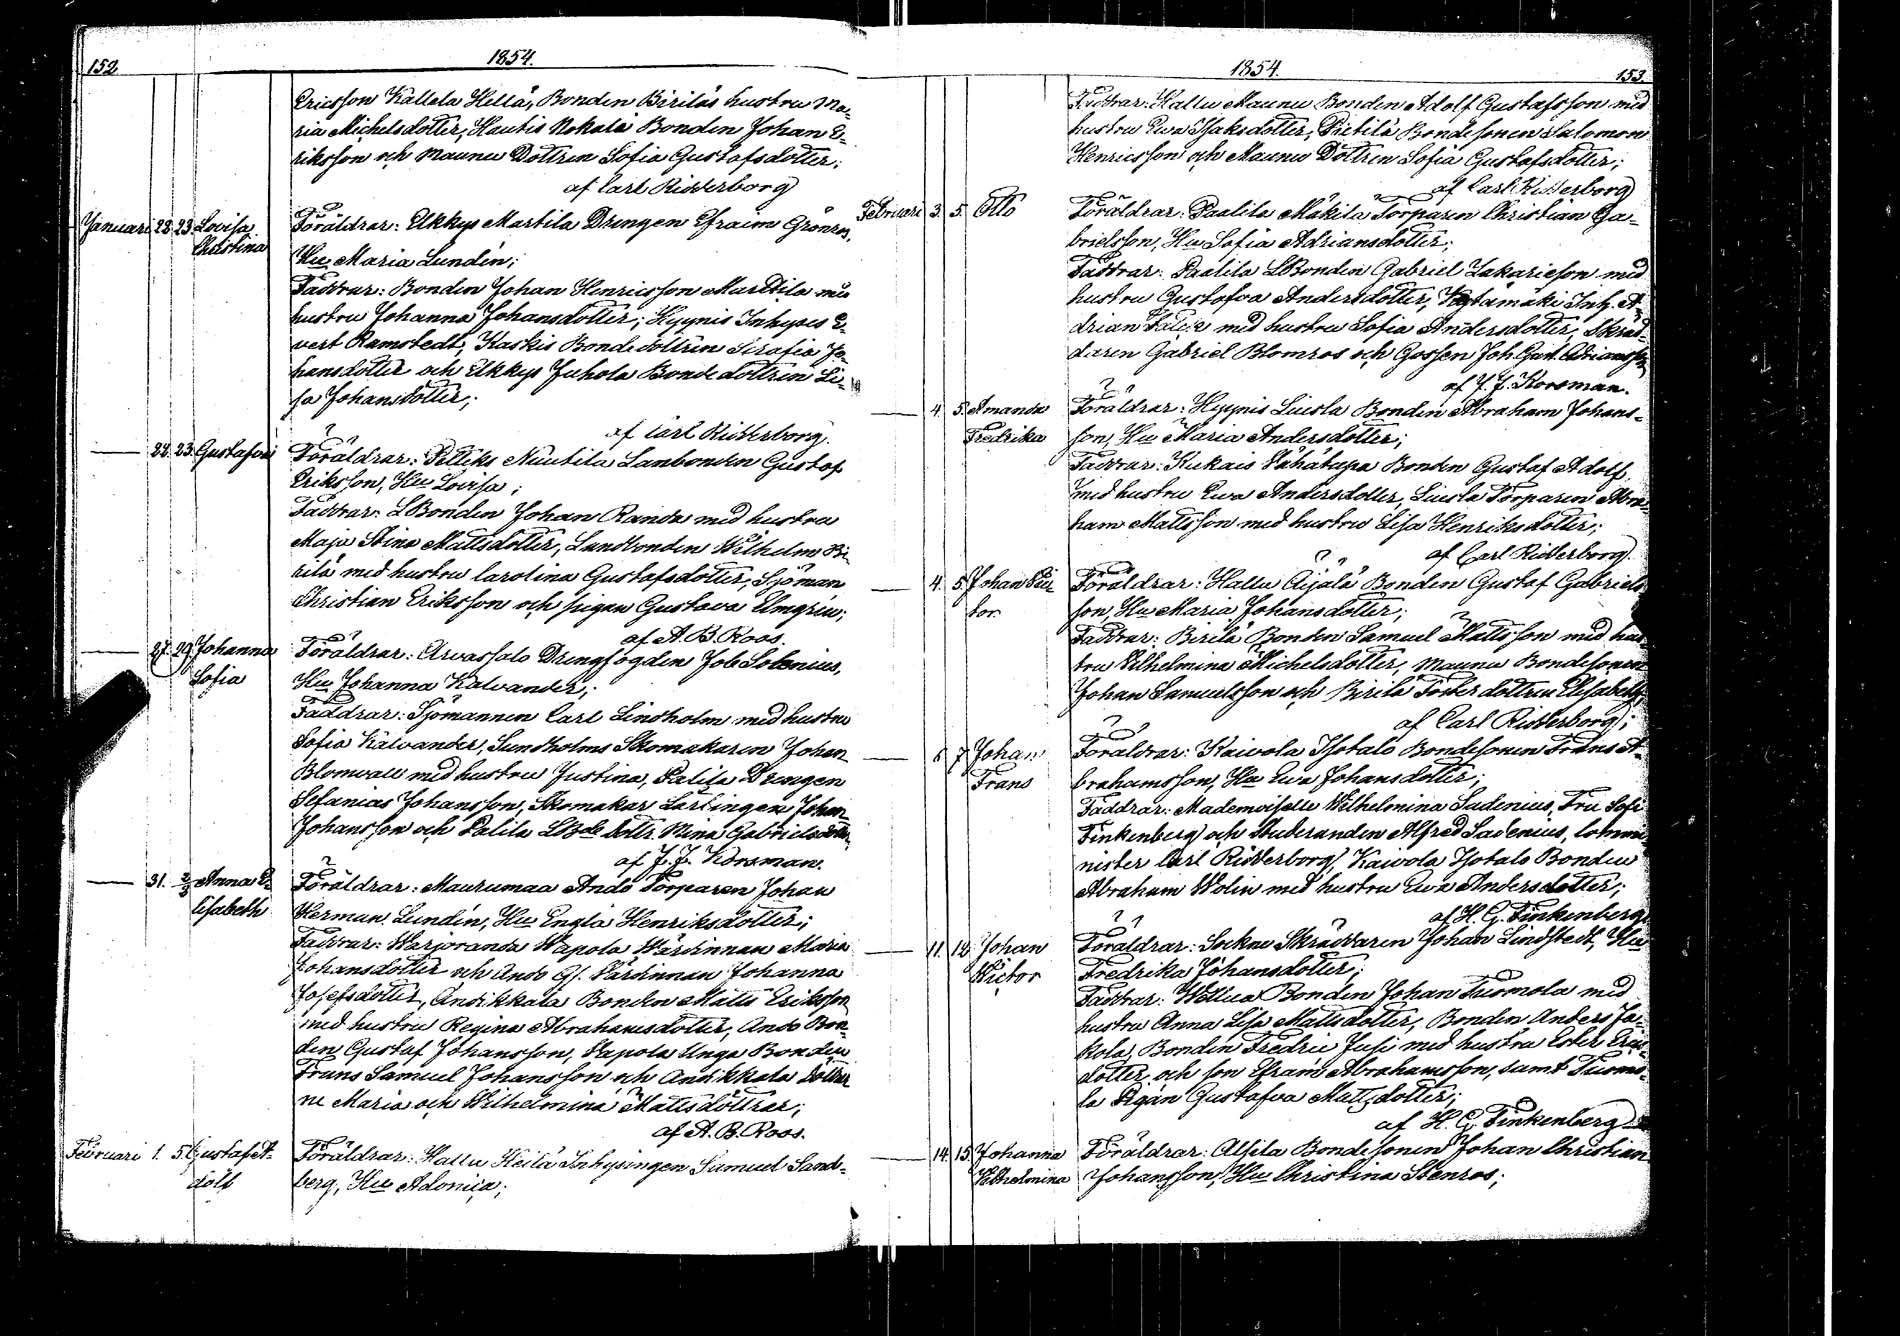 152
1854.
Ericsson Kallela Hellä, Bonden Biriläs hustru Ma-
ria Michelsdotter, Hautis Nokala Bonden Johan E-
riksson och Maunu Dottren Sofia Gustafsdotter;
af Carl Ridderborg
Januari 22. 23. Lovisa Föräldrar: Ukkys Martila Drengen Efraim Grönros,
Christina Hu Maria Lundén;
Faddrar: Bonden Johan Henricsson Marttila med
hustru Johanna Johansdotter; Hyynis Inhyses E-
vert Ramstedt, Kaskis Bondedottren Serafia Jo-
hansdotter och Ukkys Juhola Bondedottren Li-
sa Johansdotter;
af Carl Ridderborg.
— 22. 23. Gustafva Föräldrar: Nuutila Lanbonden Gustaf
Eriksson, Hu Lovisa;
Faddrar: LBonden Johan Randa med hustru
Maja Stina Mattsdotter, Landbonden Wilhelm Bi-
rilä med hustru Carolina Gustafsdotter, Sjöman
Christian Eriksson och pigan Gustava Elmgrén;
af A. B. Roos.
— 27. 29. Johanna Föräldrar: Arvassalo Drengfogden Job Solenius,
Sofia Hu Johanna Kalvander;
Faddrar: Sjömannen Carl Lindholm med hustru
Sofia Kalvander, Sundholms Skomakaren Johan
Blomvall med hustru Justina, Palila Drengen
Sefanias Johansson, Skomakar Lärlingen Johan
Johansson och Palila LBde dottr. Mina Gabrielsdotter,
af J. J. Korsman.
— 31. 2/2 Anna E- Föräldrar: Maurumaa Ando Torparen Johan
lisabeth Herman Lundén, Hu Engla Henriksdotter;
Faddrar: Warjoranda Wapola Wärdinnan Maria
Johansdotter och Ando Gl. Wärdinnan Johanna
Josefsdotter, Andikkala Bonden Matts Eriksson
med hustru Regina Abrahamsdotter, Ando Bon-
den Gustaf Johansson, Vapola Unga Bonden
Frans Samuel Johansson och Andikkala Döttrar
ne Maria och Wilhelmina Mattsdöttrar;
af A. B. Roos.
Februari 1. 5. Gustaf A- Föräldrar: Hallu Heilä Inhysingen Samuel Sand-
dolf berg, Hu Adonica;
1854.
153.
Faddrar: Hallu Maunu Bonden Adolf Gustafsson med
hustru Ewa Isaksdotter, Pietilä Bondesonen Salomon
Henricsson och Maunu Dottren Sofia Gustafsdotter;
af Carl Ridderborg
Februari 3. 5. Otto Föräldrar: Paalila Mäkilä Torparen Christian Ga-
brielsson, Hu Sofia Adriansdotter;
Faddrar: Paalila LBonden Gabriel Zakarieson med
hustru Gustafva Andersdotter, Inh. A-
drian med hustru Sofia Andersdotter, Skräd-
daren Gabriel Blomros och Gossen Joh. Gust. Adriansson
af J. J. Korsman.
— 4. 5. Amanda Föräldrar: Hyynis Liusla Bonden Abraham Johans-
Fredrika son, Hu Maria Andersdotter;
Faddrar: Kukais Vähätapa Bonden Gustaf Adolf
med hustru Ewa Andersdotter, Liusla Torparen Abra-
ham Mattsson med hustru Lisa Henriksdotter;
af Carl Ridderborg.
— 4. 5. Johan Vic- Föräldrar: Hallu Äijälä Bonden Gustaf Gabriels-
tor. son, Hu Maria Johansdotter;
Faddrar: Birilä Bonden Samuel Mattsson med hus-
tru Vilhelmina Michelsdotter, Maunu Bondesonen
Johan Samuelsson och Birilä Foster dottren Elisabeth,
af Carl Ridderborg;
— 6. 7. Johan Föräldrar: Kaivola Isotalo Bondesonen Frans A-
Frans brahamsson, Hu Ewa Johansdotter;
Faddrar: Mademoiselle Wilhelmina Sadenius, Fru Sofi
Finkenberg och Studeranden Alfred Sadenius, Commi-
nister Carl Ridderborg, Kaivola Isotalo Bonden
Abraham Wolin med hustru Ewa Andersdotter;
af H. G. Finkenberg
— 11. 12. Johan Föräldrar: Sockne Skräddaren Johan Lindstedt, Hu
Victor Fredrika Johansdotter;
Faddrar: Wellua Bonden Johan Tuomola med
hustru Anna Lisa Mattsdotter, Bonden Anders Ja-
kola, Bonden Fredric Jusi med hustru Ester Erics-
dotter, och son Efraim Abrahamsson, samt Tuomo-
la Pigan Gustafva Mattsdotter;
af H. G. Finkenberg
— 14. 15. Johanna Föräldrar: Alsila Bondesonen Johan Christian
Vilhelmina Johansson, Hu Christina Stenros;